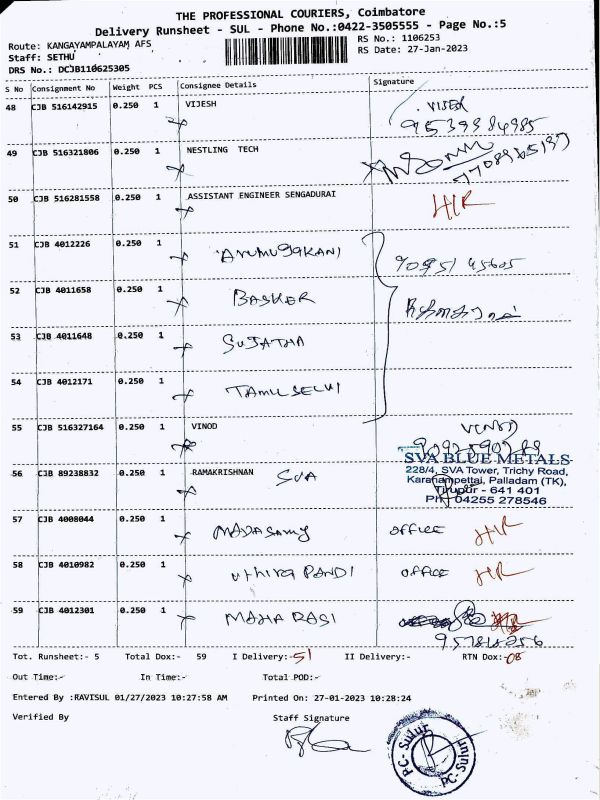 THE PROFESSIONAL COURIERS, Coimbatore
Delivery Runsheet - SUL - Phone No.:0422-3505555 - Page No.:5
Route: KANGAYAMPALAYAM AFS RS No.: 1106253
Staff: SETHU RS Date: 27-Jan-2023
DRS No.: DCJB110625305
S No Consignment No Weight PCS Consignee Details Signature
48 CJB 516142915 0.250 1 VIJESH
49 CJB 516321806 0.250 1 NESTLING TECH
50 CJB 516281558 0.250 1 ASSISTANT ENGINEER SENGADURAI H/R
51 CJB 4012226 0.250 1 ARUMUGAKANI
52 CJB 4011658 0.250 1 BASKER
53 CJB 4011648 0.250 1 SUJATHA
54 CJB 4012171 0.250 1 TAMIL SELVI
55 CJB 516327164 0.250 1 VINOD
SVA BLUE METALS
56 CJB 89238832 0.250 1 RAMAKRISHNAN SVA 228/4, SVA Tower, Trichy Road,
Karanampettai, Palladam (TK),
Tirupur - 641 401
PH: 04255 278546
57 CJB 4008044 0.250 1 MADASAMY OFFICE H/R
58 CJB 4010982 0.250 1 UTHIRA PANDI OFFICE H/R
59 CJB 4012301 0.250 1 MAHA RASI
Tot. Runsheet:- 5 Total Dox:- 59 I Delivery:- 51 II Delivery:- RTN Dox:- 08
Out Time:- In Time:- Total POD:-
Entered By :RAVISUL 01/27/2023 10:27:58 AM Printed On: 27-01-2023 10:28:24
Verified By Staff Signature
PC-Sulur PC-Sulur